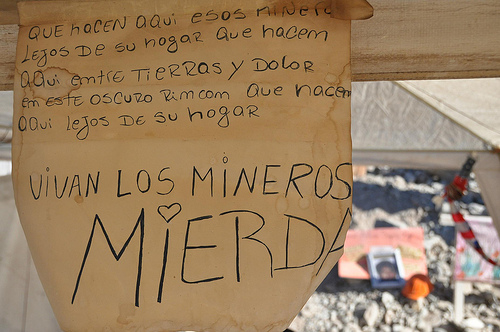 QUE HACEN AQUI ESOS MINERO
LEJOS DE SU HOGAR QUE HACEM
AQUI ENTRE TIERRAS Y DOLOR
EM ESTE OSCURO RIMCOM QUE HACEM
AQUI LEJOS DE SU HOGAR
VIVAN LOS MINEROS
MIERDA